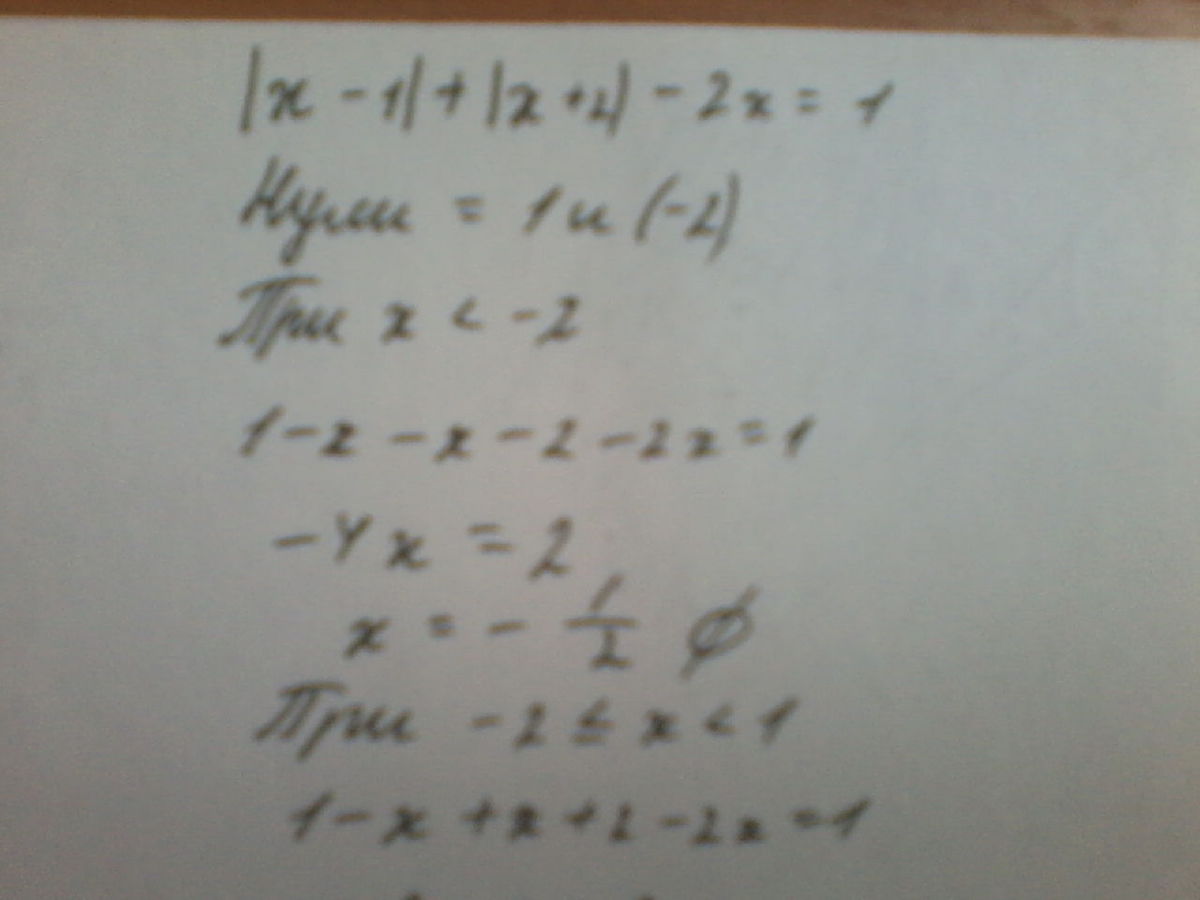 |x - 1| + |x + 2| - 2x = 1
Нули = 1 и (-2)
При x < -2
1 - x - x - 2 - 2x = 1
-4x = 2
x = - 1/2 ∅
При -2 ≤ x < 1
1 - x + x + 2 - 2x = 1